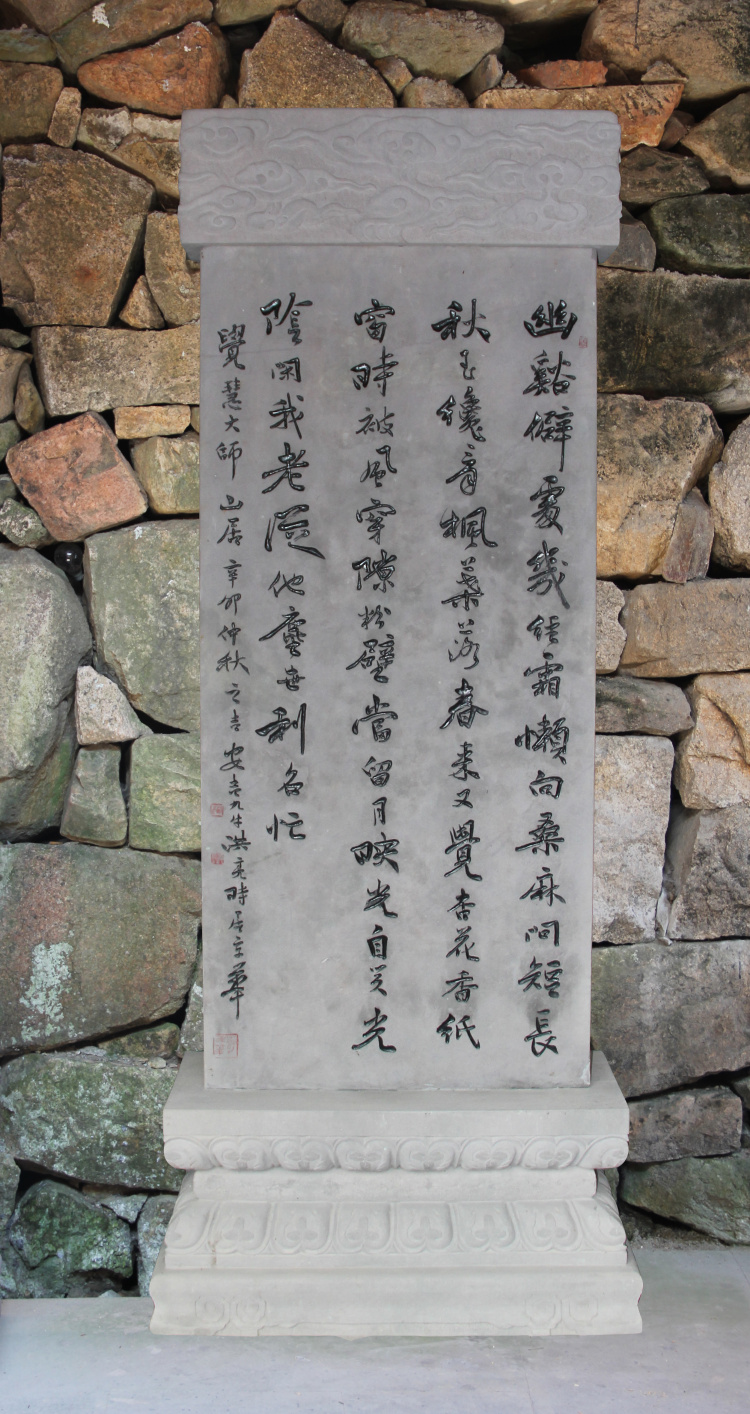 幽谿僻處幾經霜懶向桑麻問短長
秋至纔看楓葉落春來又覺杏花香紙
窗時被風穿隙粉壁當留月映光自笑光
陰閑我老從他塵世利名忙
覺慧大師山居辛卯仲秋之吉安吉九牛洪亮時居京華